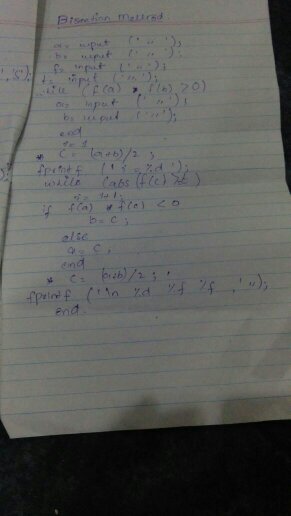 Bisection Method.
a = input (' " ');
b = input (' " ');
f = input (' " ');
t = input (' " ');
while (f(a) * f(b) > 0)
a = input (' " ');
b = input (' " ');
end
i = 1
* C = (a+b)/2 ;
fprintf (' i = %d ');
while (abs (f(c) > t)
i = i+1;
if f(a) * f(c) < 0
b = c ;
else
a = c ;
end
* C = (a+b)/2 ;
fprintf (' \n %d %f %f , ' ");
end.